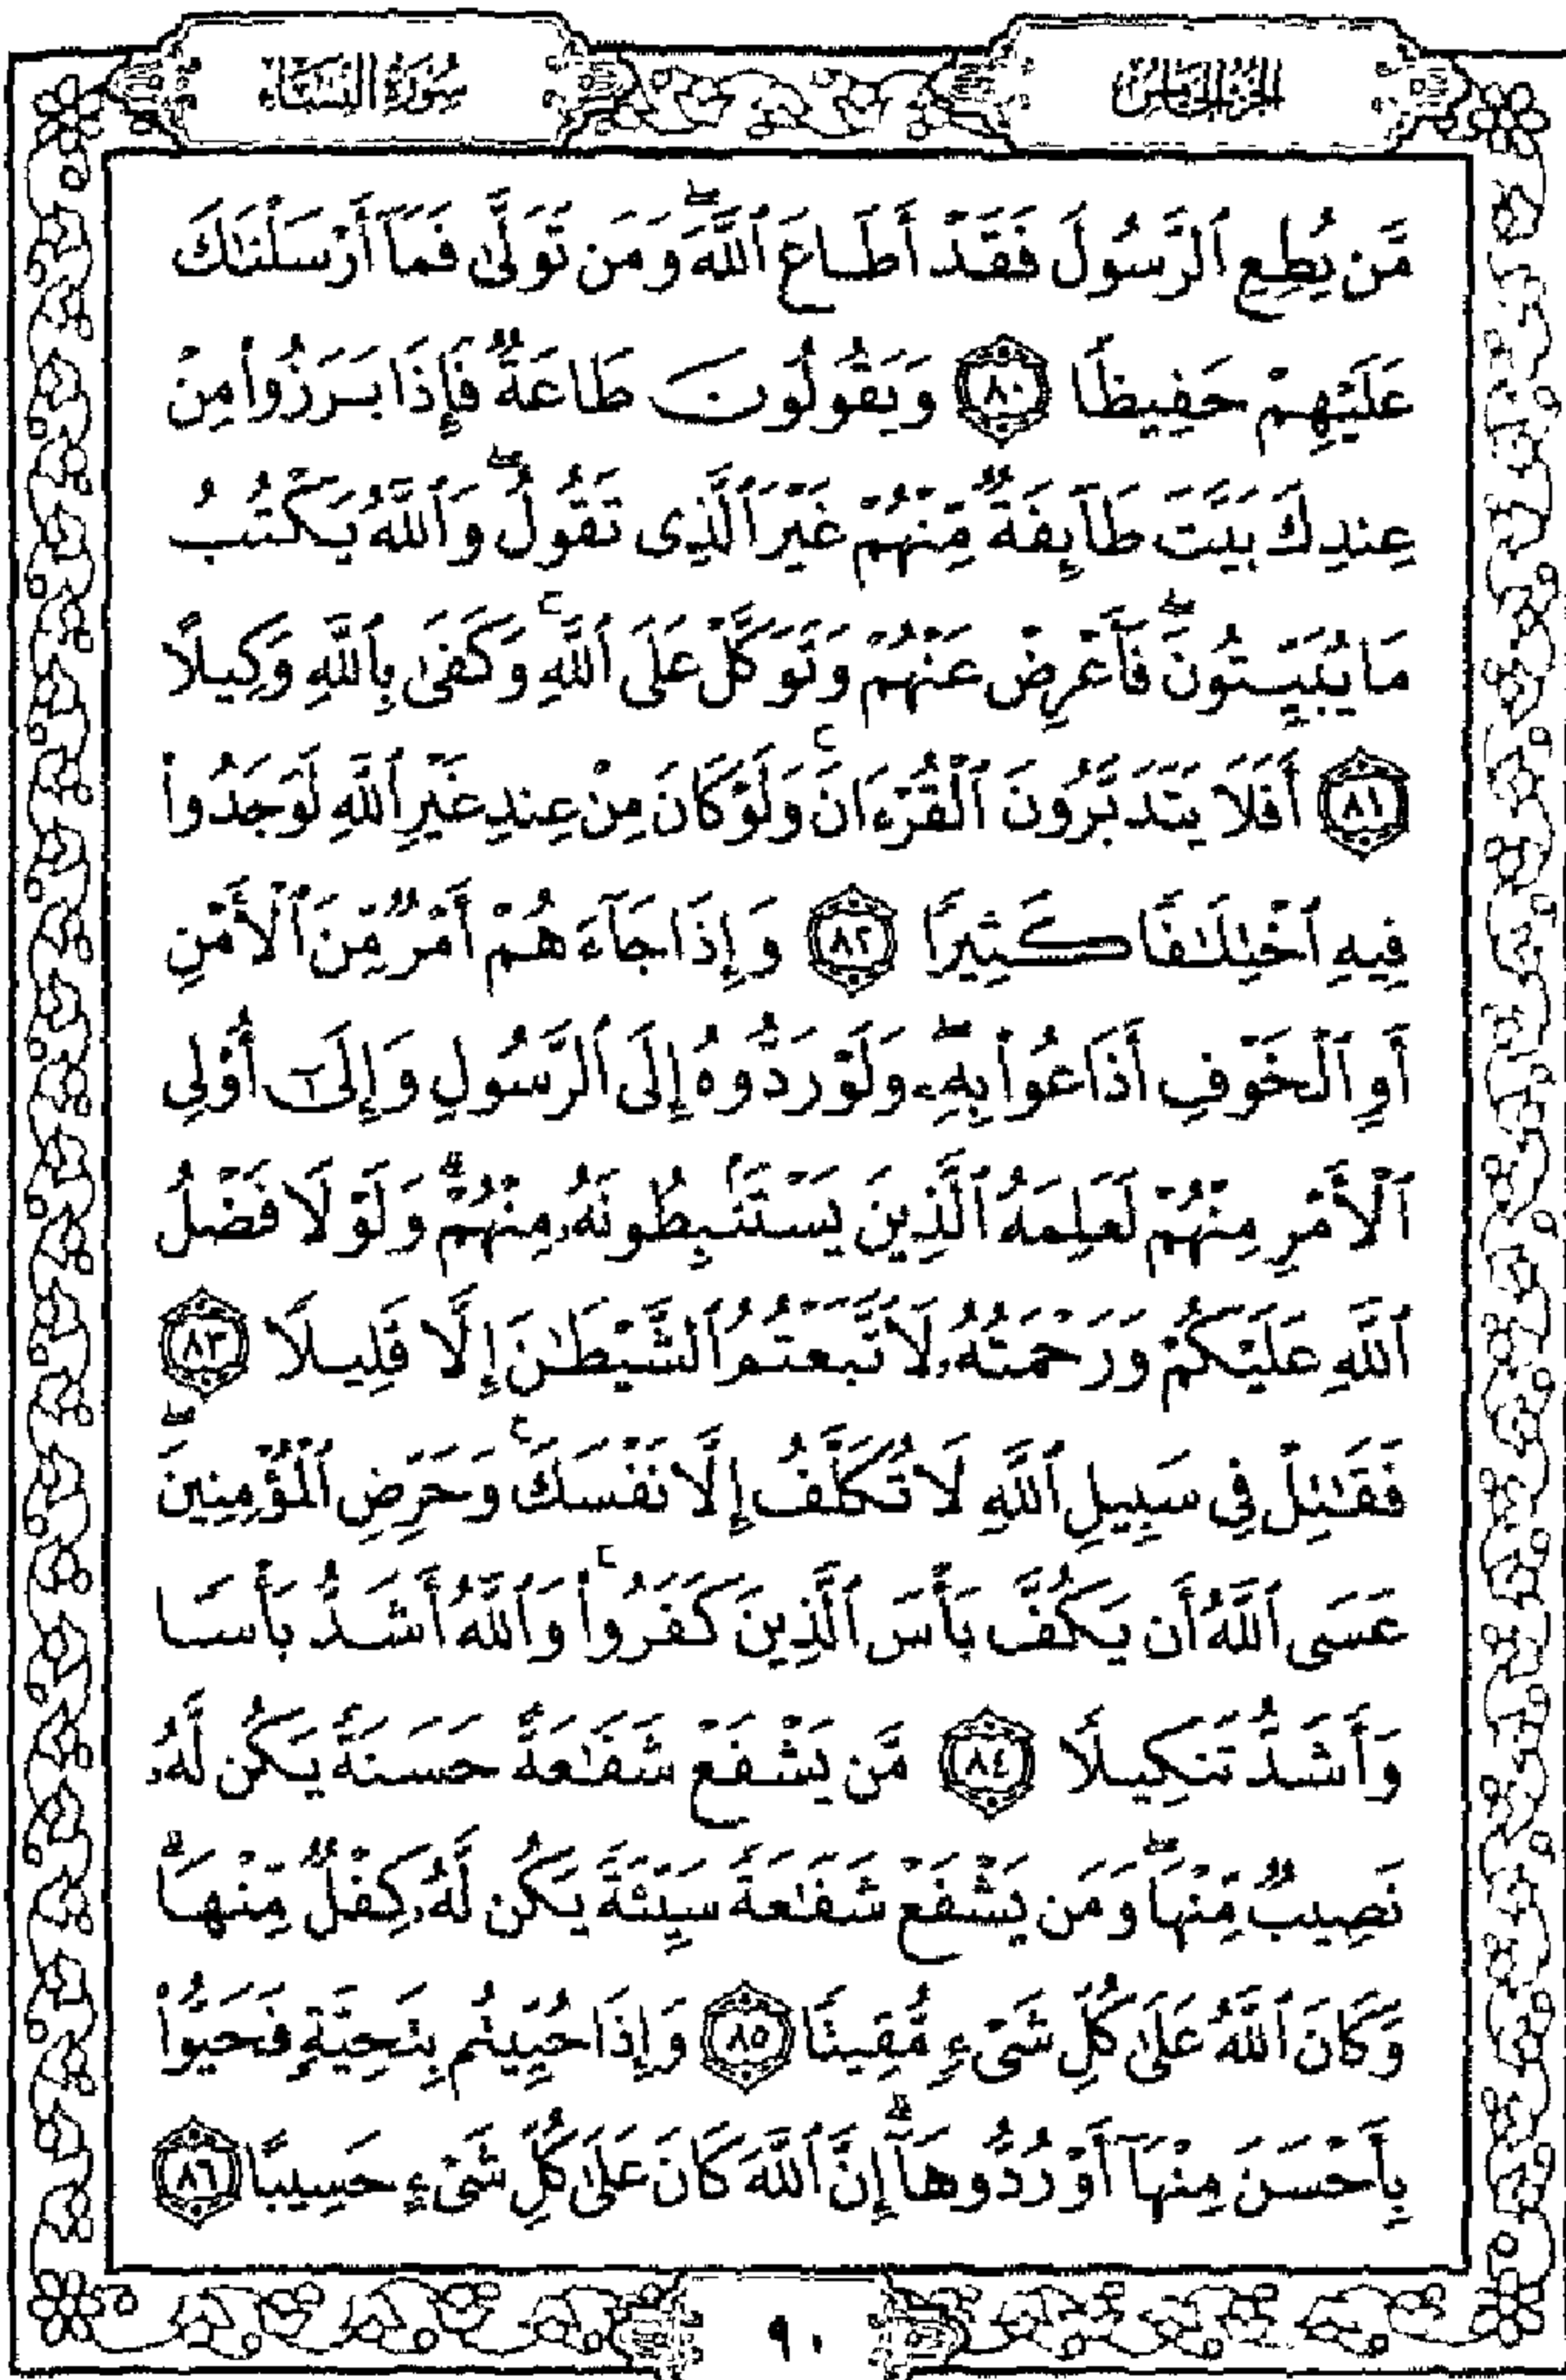 الجزء الخامس
سورة النساء
مَّن يُطِعِ ٱلرَّسُولَ فَقَدْ أَطَاعَ ٱللَّهَۖ وَمَن تَوَلَّىٰ فَمَآ أَرْسَلْنَٰكَ
عَلَيْهِمْ حَفِيظًا ٨٠ وَيَقُولُونَ طَاعَةٌ فَإِذَا بَرَزُوا۟ مِنْ
عِندِكَ بَيَّتَ طَآئِفَةٌ مِّنْهُمْ غَيْرَ ٱلَّذِى تَقُولُۖ وَٱللَّهُ يَكْتُبُ
مَا يُبَيِّتُونَۖ فَأَعْرِضْ عَنْهُمْ وَتَوَكَّلْ عَلَى ٱللَّهِۚ وَكَفَىٰ بِٱللَّهِ وَكِيلًا
٨١ أَفَلَا يَتَدَبَّرُونَ ٱلْقُرْءَانَۚ وَلَوْ كَانَ مِنْ عِندِ غَيْرِ ٱللَّهِ لَوَجَدُوا۟
فِيهِ ٱخْتِلَٰفًا كَثِيرًا ٨٢ وَإِذَا جَآءَهُمْ أَمْرٌ مِّنَ ٱلْأَمْنِ
أَوِ ٱلْخَوْفِ أَذَاعُوا۟ بِهِۦۖ وَلَوْ رَدُّوهُ إِلَى ٱلرَّسُولِ وَإِلَىٰٓ أُو۟لِى
ٱلْأَمْرِ مِنْهُمْ لَعَلِمَهُ ٱلَّذِينَ يَسْتَنۢبِطُونَهُۥ مِنْهُمْۗ وَلَوْلَا فَضْلُ
ٱللَّهِ عَلَيْكُمْ وَرَحْمَتُهُۥ لَٱتَّبَعْتُمُ ٱلشَّيْطَٰنَ إِلَّا قَلِيلًا ٨٣
فَقَٰتِلْ فِى سَبِيلِ ٱللَّهِ لَا تُكَلَّفُ إِلَّا نَفْسَكَۚ وَحَرِّضِ ٱلْمُؤْمِنِينَۖ
عَسَى ٱللَّهُ أَن يَكُفَّ بَأْسَ ٱلَّذِينَ كَفَرُوا۟ۚ وَٱللَّهُ أَشَدُّ بَأْسًا
وَأَشَدُّ تَنكِيلًا ٨٤ مَّن يَشْفَعْ شَفَٰعَةً حَسَنَةً يَكُن لَّهُۥ
نَصِيبٌ مِّنْهَاۖ وَمَن يَشْفَعْ شَفَٰعَةً سَيِّئَةً يَكُن لَّهُۥ كِفْلٌ مِّنْهَاۗ
وَكَانَ ٱللَّهُ عَلَىٰ كُلِّ شَىْءٍ مُّقِيتًا ٨٥ وَإِذَا حُيِّيتُم بِتَحِيَّةٍ فَحَيُّوا۟
بِأَحْسَنَ مِنْهَآ أَوْ رُدُّوهَآۗ إِنَّ ٱللَّهَ كَانَ عَلَىٰ كُلِّ شَىْءٍ حَسِيبًا ٨٦
٩٠